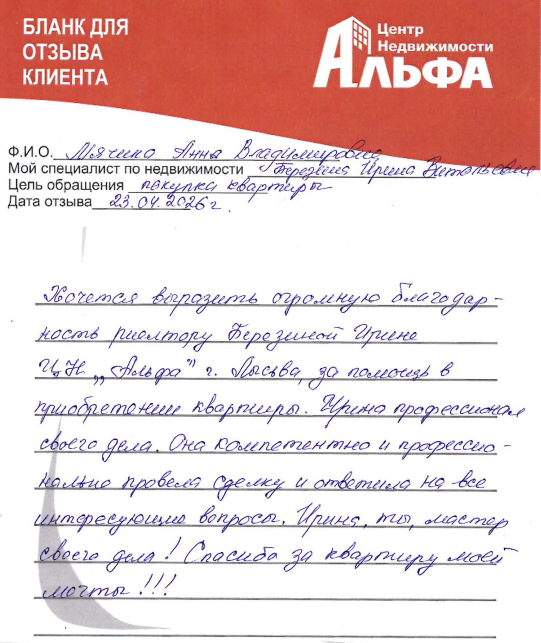 БЛАНК ДЛЯ
ОТЗЫВА
КЛИЕНТА
Центр
Недвижимости
АЛЬФА
Ф.И.О. Мячина Анна Владимировна
Мой специалист по недвижимости Березина Ирина Витальевна
Цель обращения покупка квартиры
Дата отзыва 23.04.2026 г.
Хочется выразить огромную благодар-
ность риэлтору Березиной Ирине
ЦН „Альфа" г. Лысьва, за помощь в
приобретении квартиры. Ирина профессионал
своего дела. Она компетентно и профессио-
нально провела сделку и ответила на все
интересующие вопросы. Ирина, ты, мастер
своего дела! Спасибо за квартиру моей
мечты!!!